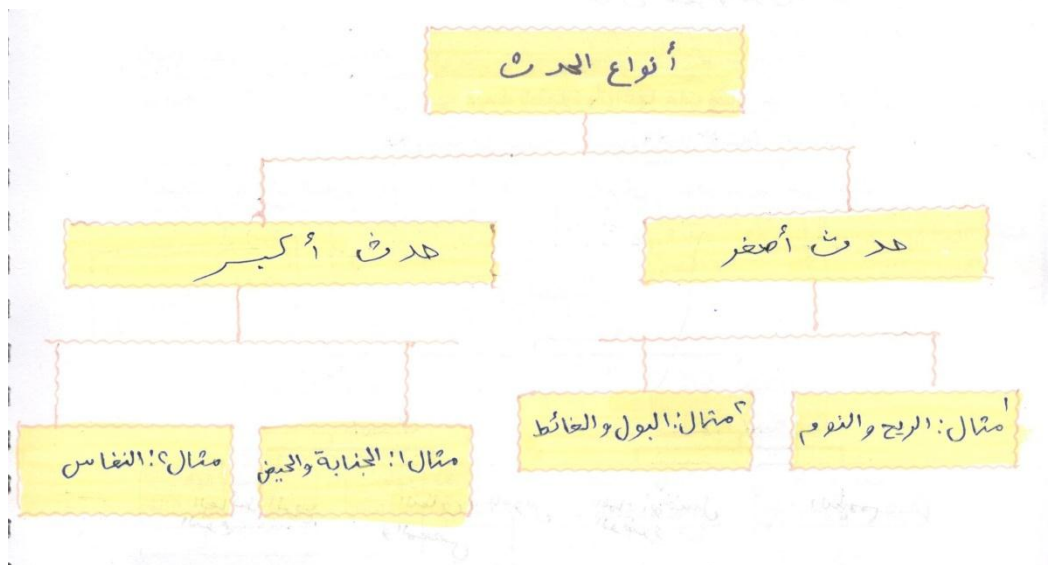 أنواع الحدث
حدث أصغر
حدث أكبر
مثال١: الريح والنوم
مثال٢: البول والغائط
مثال١: الجنابة والحيض
مثال٢: النفاس